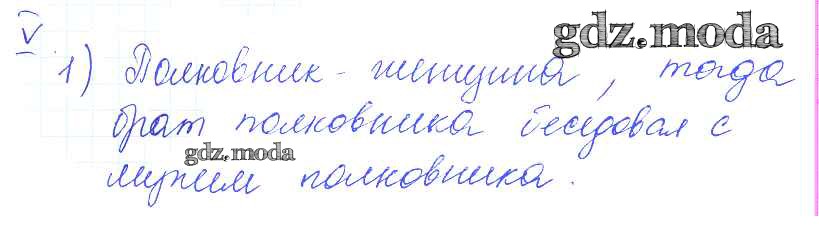 V
gdz.moda
1) Полковник - женщина, тогда
брат полковника беседовал с
gdz.moda
мужем полковника.